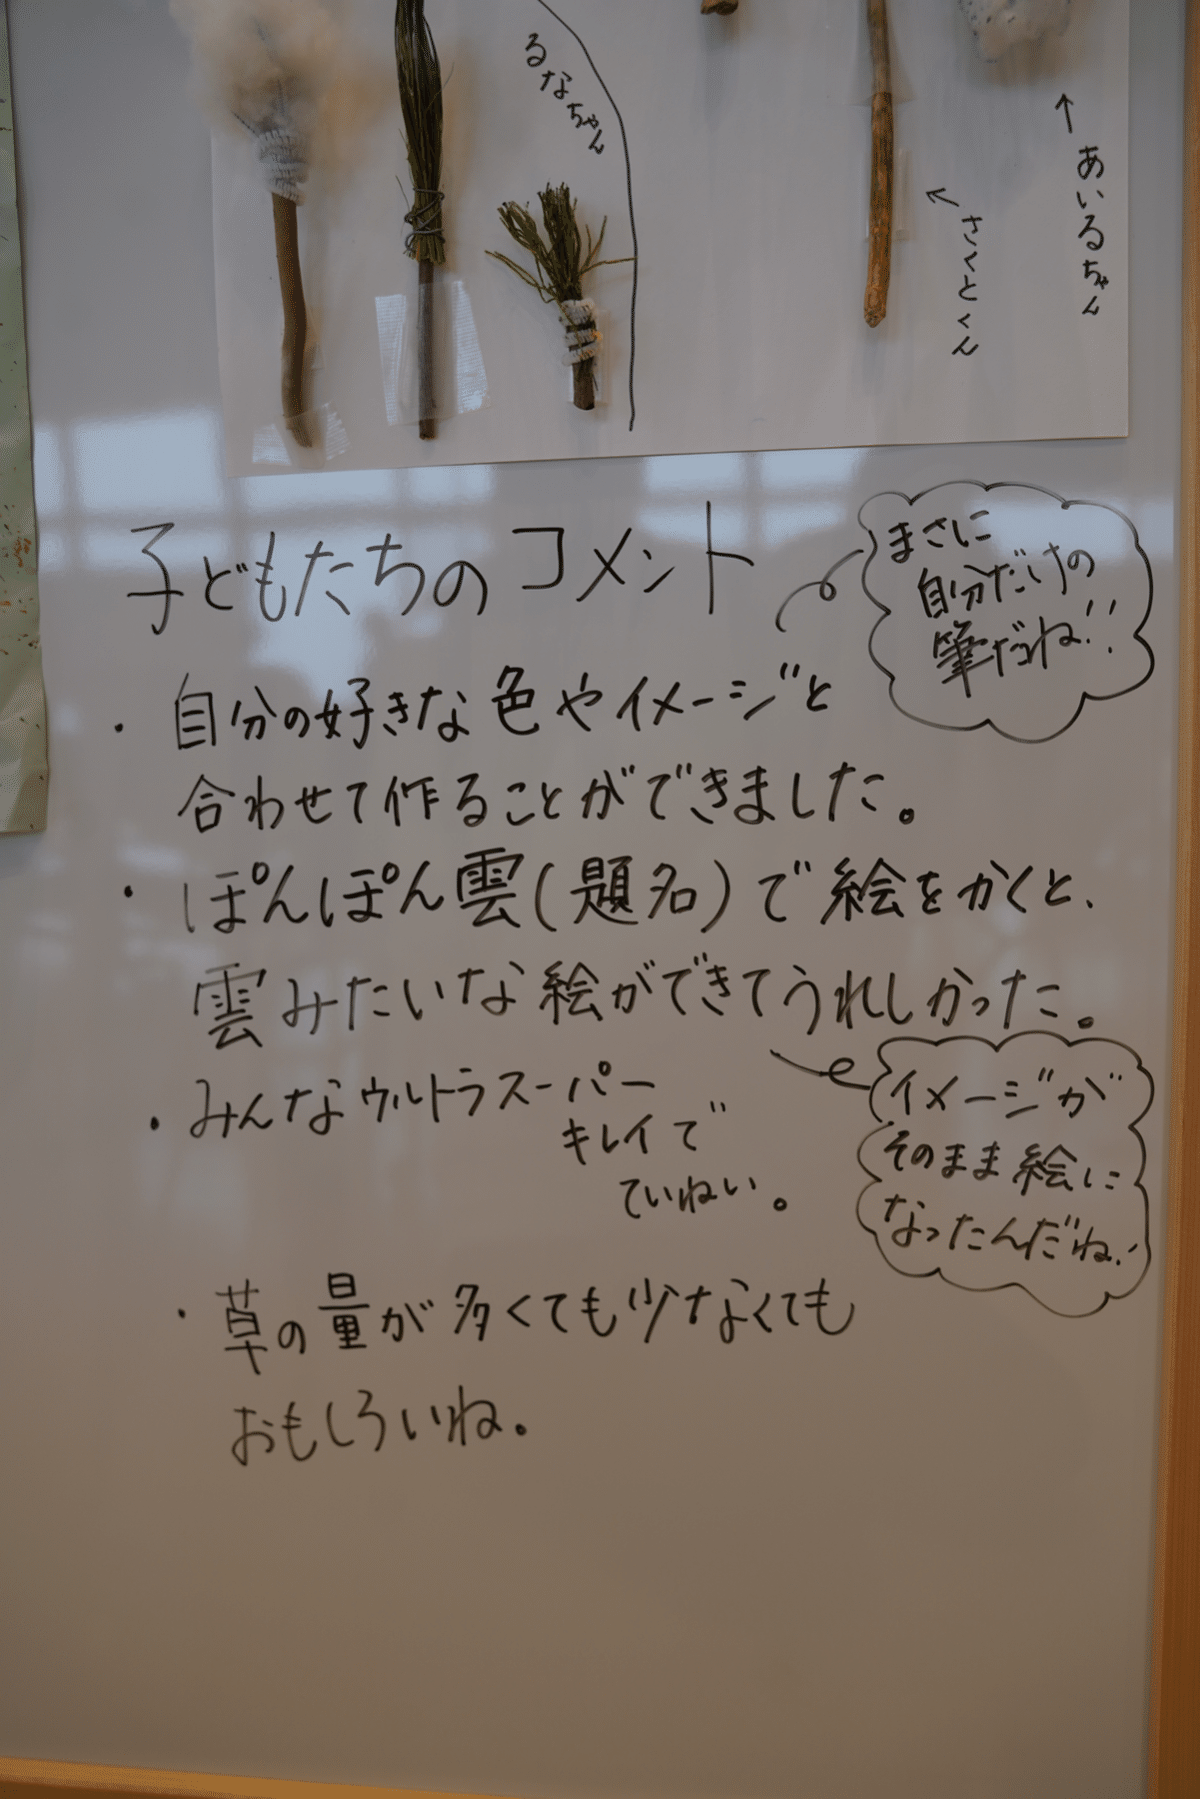 るなちゃん
あいるちゃん
さくとくん
子どもたちのコメント
まさに
自分だけの
筆だね!!
・自分の好きな色やイメージと
合わせて作ることができました。
・ぽんぽん雲(題名)で絵をかくと、
雲みたいな絵ができてうれしかった。
イメージが
そのまま絵に
なったんだね!
・みんなウルトラスーパー
キレイで
ていねい。
・草の量が多くても少なくても
おもしろいね。